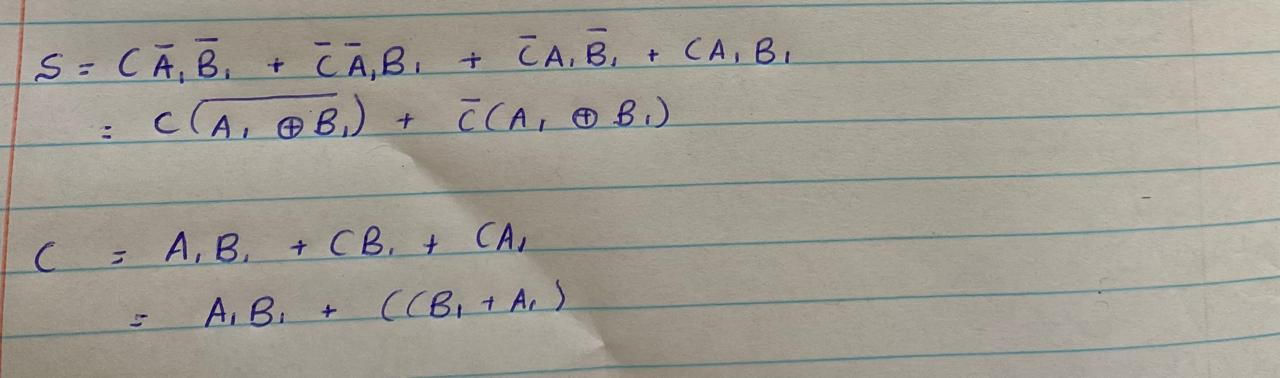 S = C A̅₁ B̅₁ + C̅ A̅₁ B₁ + C̅ A₁ B̅₁ + C A₁ B₁
= C (A̅₁̅ ̅⊕̅ ̅B̅₁) + C̅ (A₁ ⊕ B₁)
C = A₁ B₁ + C B₁ + C A₁
= A₁ B₁ + C(B₁ + A₁)